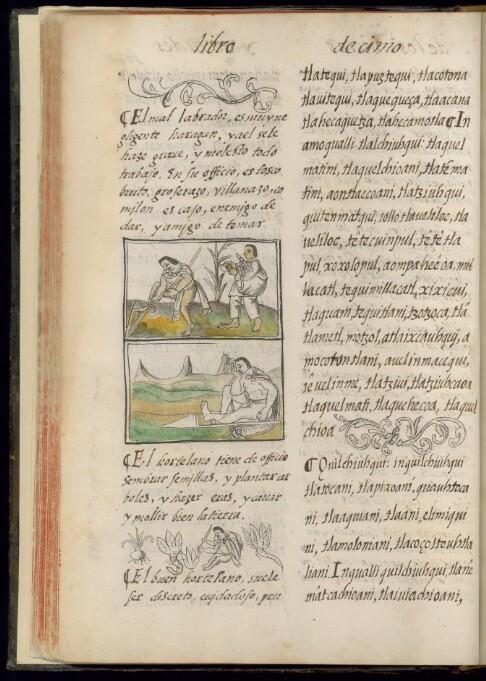 libro
decimo
¶El mal labrador, es muy ne
gligente haragan, y a el se le
haze graue, y molesto todo
trabajo. En su officio, es tosco
bruto, groserazo, villanazo, co
milon escaso, enemigo de
dar, y amigo de tomar.
¶El hortelano tiene de officio
sembrar semillas, y plantar ar
boles, y hazer eras, y cauar
y mollir bien la tierra.
¶El buen hortelano, suele
ser discreto, cuydadoso, pru
tlatequi, tlapuztequi, tlacotona
tlauitequi, tlaquequeça, tlaacana
tlahecaquetza, tlahecamotla ¶In
amoqualli tlalchiuhqui: tlaquel
matini, tlaquelchioani, tlatema
tini, aontlaecoani, tlatziuhqui,
quitenmatqui, iollotlaueliloc, tla
ueliloc, tetecuinpul, tetetla
pul, xoxolopul, aompaheeoa, mil
lacatl, tequimillacatl, xixicui,
tlaquani, tequitlani, tzotzoca, tla
tlametl, motzol, atlaixcauhqui, a
mocotontlani, auelinmacequi,
ieuelinme, tlatziui, tlatziuhcaoa
tlaquelmati, tlaquehecoa, tlaquel
chioa
¶Quilchiuhqui: in quilchiuhqui
tlatocani, tlapixoani, quauhtoca
ni, tlaaquiani, tlaani, elimiqui
ni, tlamoloniani, tlacoçolteuhtla
liani In qualli quilchiuhqui, tlane
matcachioani, tlaiuiachioani,